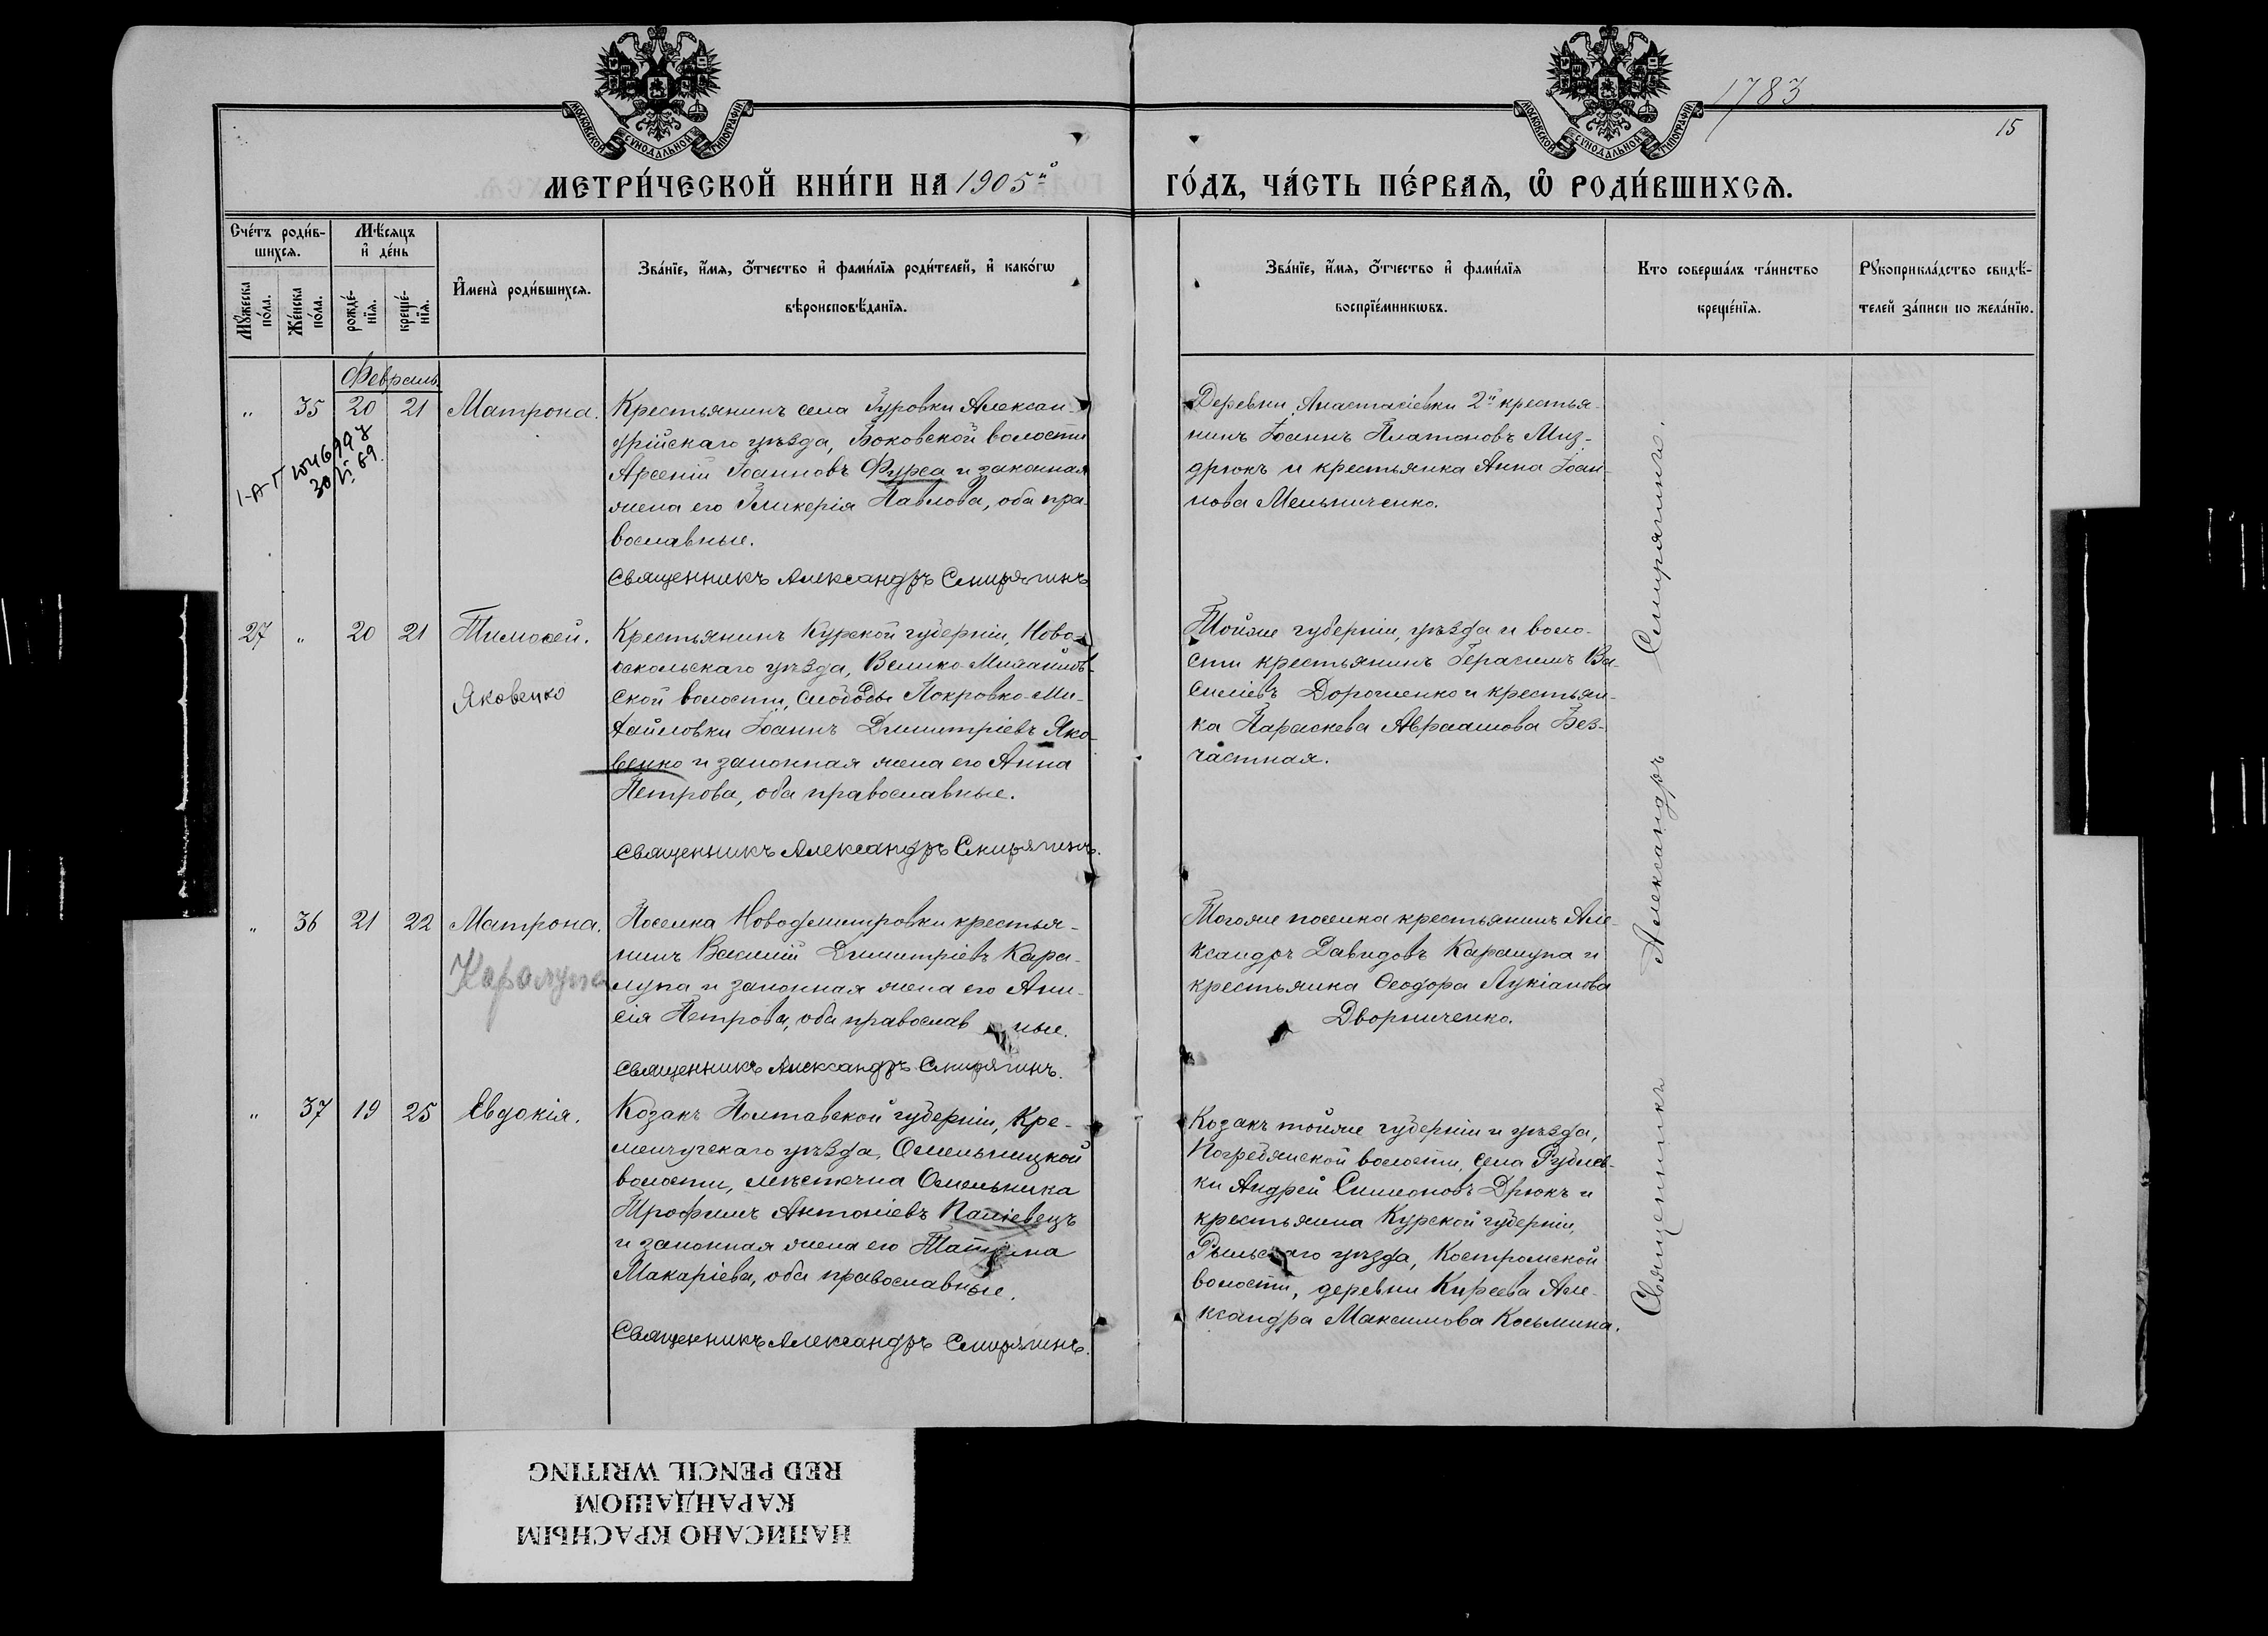 МОСКОВСКОЙ СѴНОДАЛЬНОЙ ТИПОГРАФІИ
МОСКОВСКОЙ СѴНОДАЛЬНОЙ ТИПОГРАФІИ
1783
15
МЕТРИ́ЧЕСКОЙ КНИ́ГИ НА 1905й
ГО́ДЪ, ЧА́СТЬ ПЕ́РВАѦ, Ѽ РОДИ́ВШИХСѦ.
Сче́тъ роди́в-
шихсѧ.
Мꙋ́жеска по́ла.
Же́нска по́ла.
Мѣ́сѧцъ
и҆ де́нь
рожде́-
нїѧ.
креще́-
нїѧ.
И҆мена̀ роди́вшихсѧ.
Зва́нїе, и҆́мѧ, о҆́тчество и҆ фами́лїѧ роди́телей, и҆ како́гѡ
вѣроисповѣ́данїѧ.
Зва́нїе, и҆́мѧ, о҆́тчество и҆ фами́лїѧ
воспрїе́мникѡвъ.
Кто соверша́лъ та́инство
креще́нїѧ.
Рꙋкоприкла́дство свидѣ́-
телей за́писи по жела́нїю.
Февраль
" 35 20 21 Матрона.
30/VI 69.
Крестьянинъ села Гуровки Алексан-
дрійскаго уѣзда, Боковской волости
Арсеній Іоанновъ Фурса и законная
жена его Гликерія Павлова, оба пра-
вославные.
Священникъ Александръ Смирягинъ
Деревни Анастасіевки 2й крестья-
нинъ Іоаннъ Платоновъ Миз-
дрюкъ и крестьянка Анна Іоан-
нова Мельниченко.
27 " 20 21 Тимоѳей.
Яковенко
Крестьянинъ Курской губерніи, Ново-
оскольскаго уѣзда, Велико-Михайлов-
ской волости, слободы Покровко-Ми-
хайловки Іоаннъ Димитріевъ Яко-
венко и законная жена его Анна
Петрова, оба православные.
Священникъ Александръ Смирягинъ.
Тойже губерніи, уѣзда и воло-
сти крестьянинъ Герасимъ Ва-
силіевъ Дорошенко и крестьян-
ка Параскева Авраамова Без-
частная.
" 36 21 22 Матрона.
Каралупа
Поселка Новодмитровки крестья-
нинъ Василій Димитріевъ Кара-
лупа и законная жена его Ани-
сія Петрова, оба православные.
Священникъ Александръ Смирягинъ.
Тогоже поселка крестьянинъ Але-
ксандръ Давидовъ Каралупа и
крестьянка Ѳеодора Лукіанова
Дворниченко.
" 37 19 25 Евдокія.
Козакъ Полтавской губерніи, Кре-
менчугскаго уѣзда, Омельницкой
волости, мѣстечка Омельника
Трофимъ Антоніевъ Паліевецъ
и законная жена его Татіана
Макаріева, оба православные.
Священникъ Александръ Смирягинъ.
Козакъ тойже губерніи и уѣзда,
Погребянской волости, села Рублев-
ки Андрей Симеоновъ Дрюкъ и
крестьянка Курской губерніи,
Рыльскаго уѣзда, Костромской
волости, деревни Киреева Але-
ксандра Максимова Косьмина.
Священникъ Александръ Смирягинъ.
НАПИСАНО КРАСНЫМ
КАРАНДАШОМ
RED PENCIL WRITING